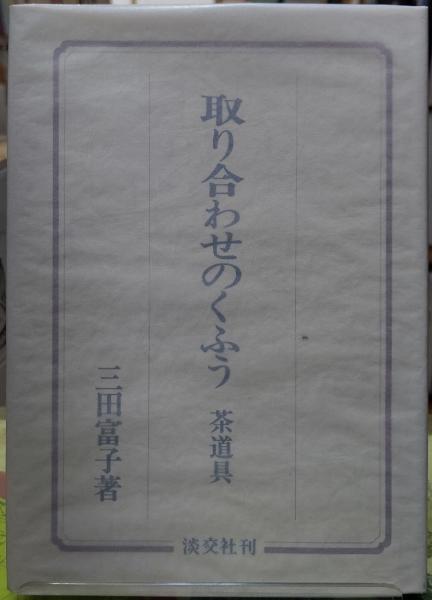 取り合わせのくふう 茶道具
三田富子著
淡交社刊